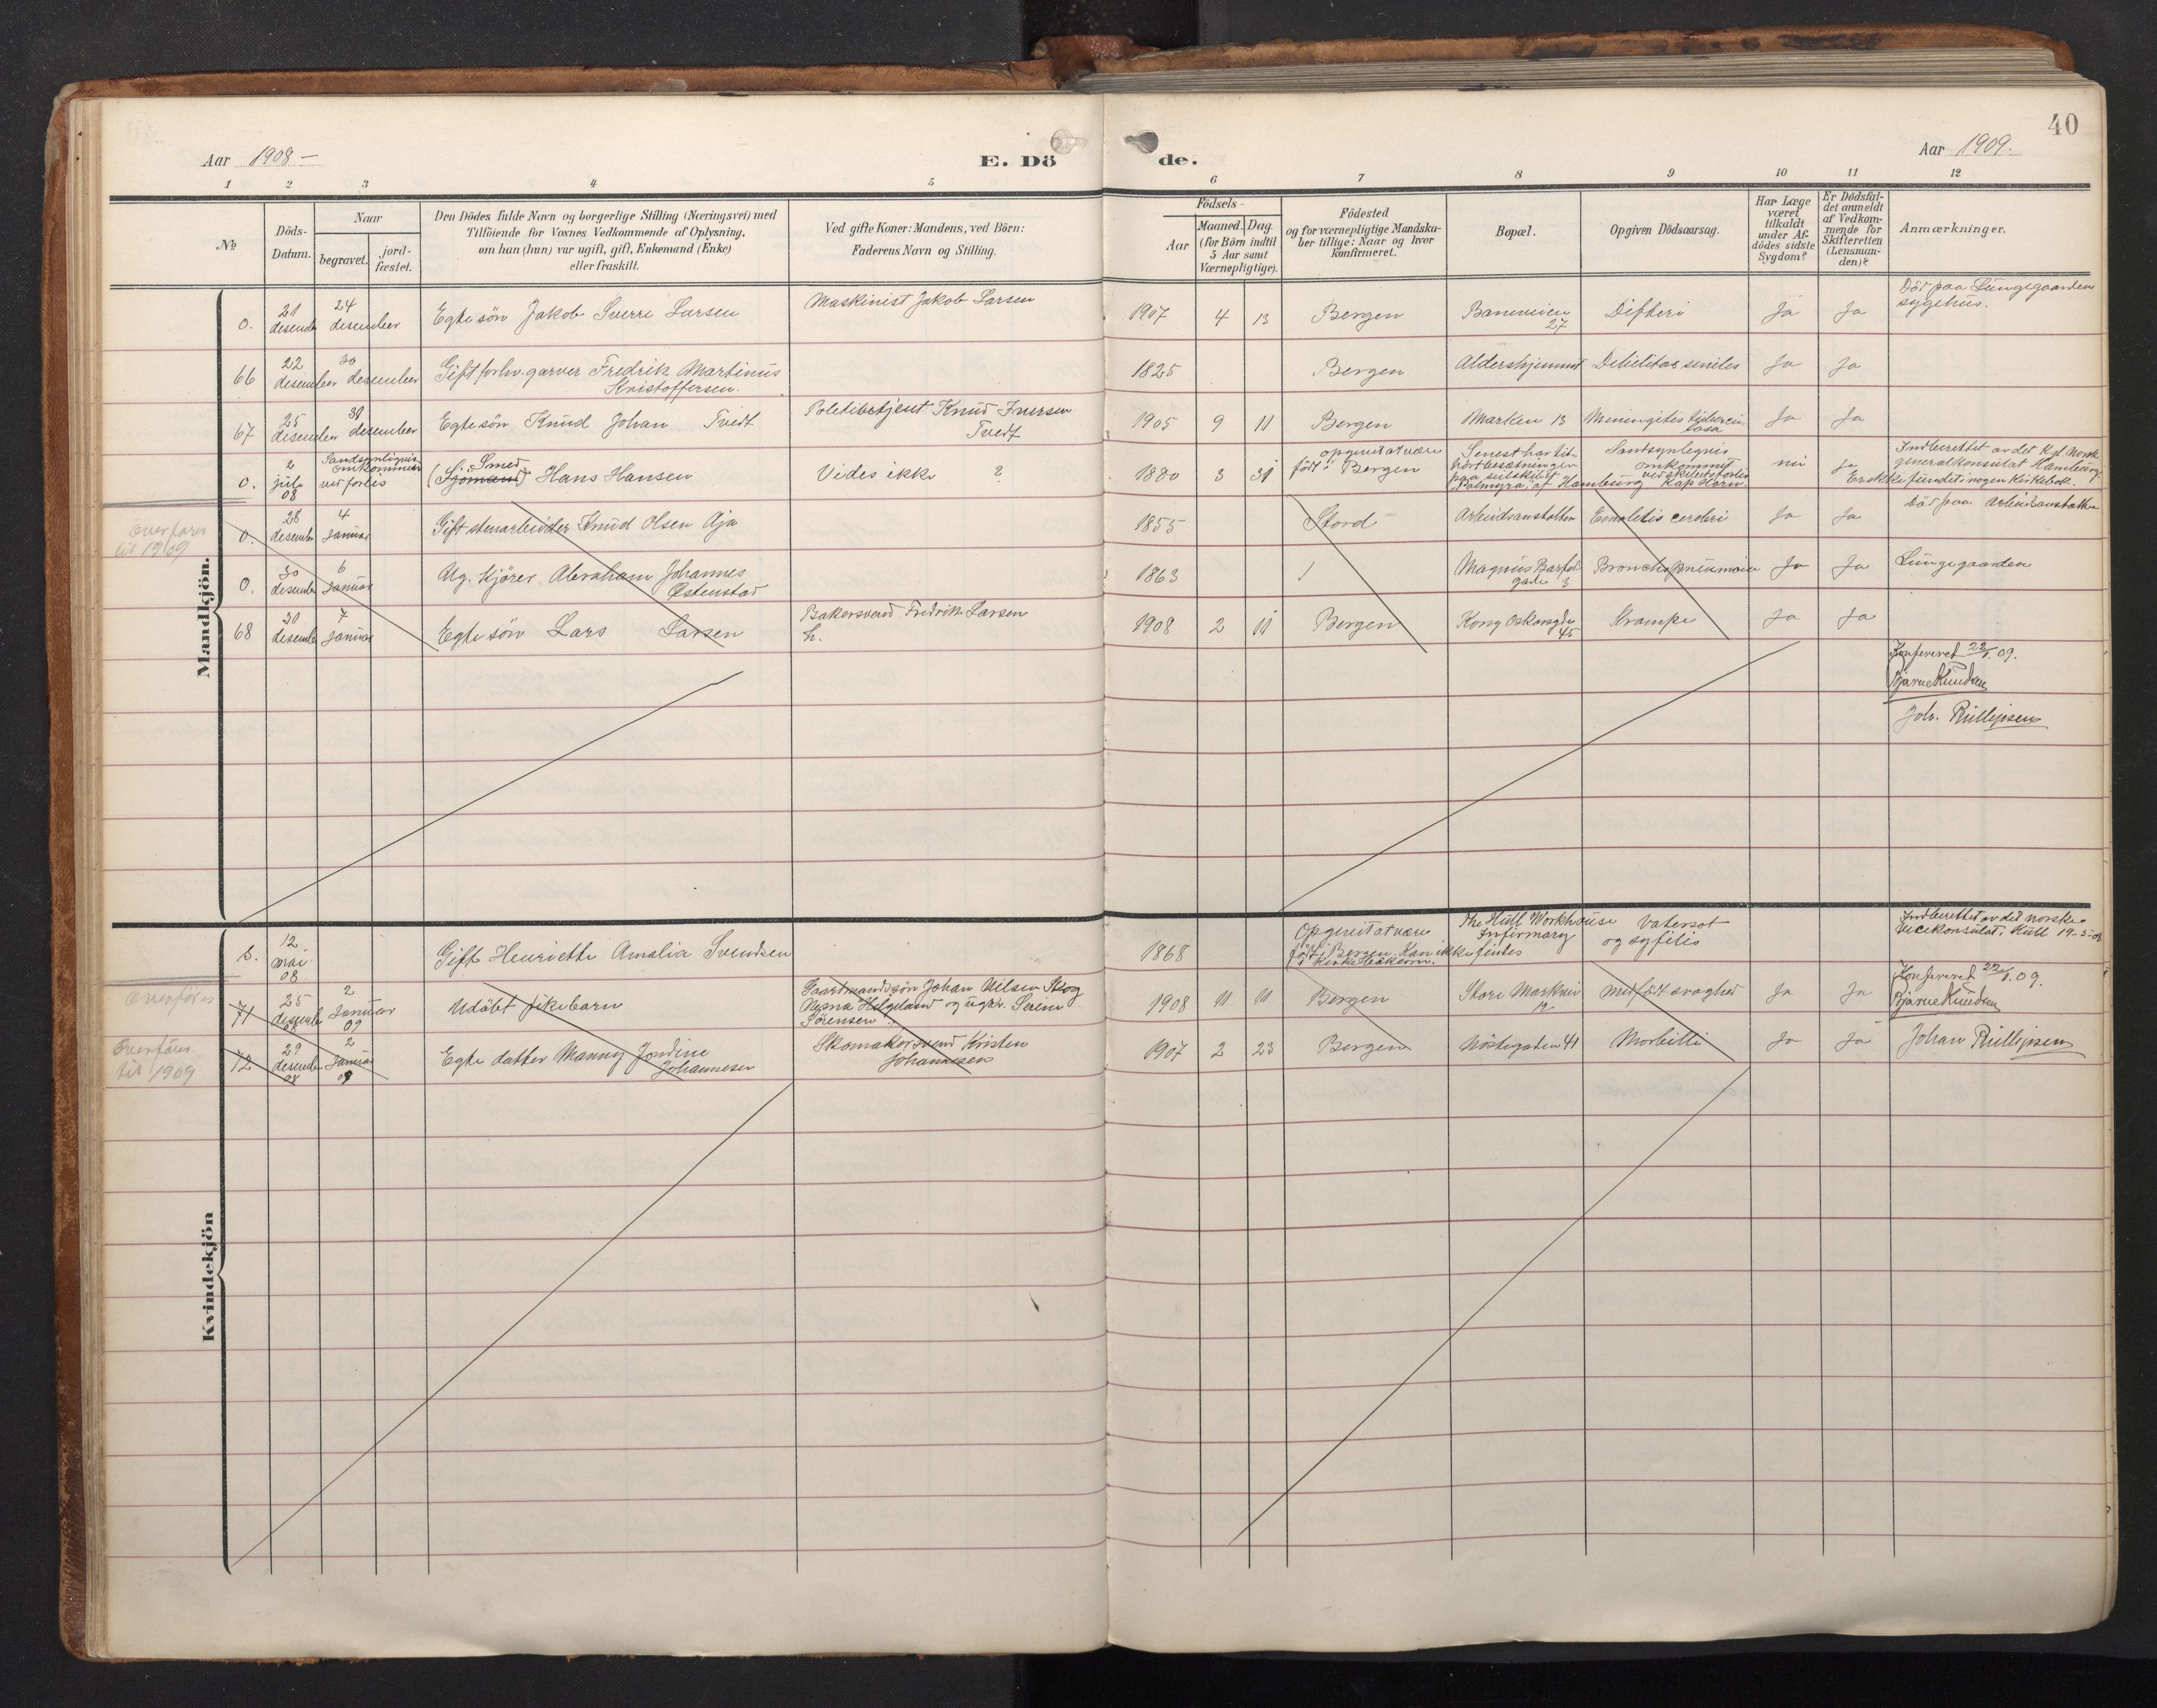 40
Aar 1908 —
E. Dö
de.
Aar 1909.
1 2 3 4 5 6 7 8 9 10 11 12
№
Döds-
Datum.
Naar
begravet.
jord-
fæstet.
Den Dödes fulde Navn og borgerlige Stilling (Næringsvei) med
Tilföiende for Voxnes Vedkommende af Oplysning,
om han (hun) var ugift, gift, Enkemand (Enke)
eller fraskilt.
Ved gifte Koner: Mandens, ved Börn:
Faderens Navn og Stilling.
Födsels-
Aar
Maaned. Dag.
(for Börn indtil
5 Aar samt
Værnepligtige).
Födested
og for værnepligtige Mandska-
ber tillige: Naar og hvor
konfirmeret.
Bopæl.
Opgiven Dödsaarsag.
Har Læge
været
tilkaldt
under Af-
dödes sidste
Sygdom?
Er Dödsfal-
det anmeldt
af Vedkom-
mende for
Skifteretten
(Lensman-
den)?
Anmærkninger.
Mandkjön.
0.
21
desember
24
desember
Egte sön Jakob Sverre Larsen
Maskinist Jakob Larsen
1907 4 13
Bergen
Baneveien
27
Difteri
Ja Ja
Död paa Lungegaardens
sygehus.
66
22
desember
30
desember
Gift forhv. garver Fredrik Martinus
Kristoffersen.
1825
Bergen
Aldershjemmet
Debilitas seniles
Ja Ja
67
25
desember
31
desember
Egte sön Knud Johan Tvedt
Poletibetjent Knud Iversen
Tvedt
1905 9 11
Bergen
Marken 13
Meningitis tubercu
losa
Ja Ja
0.
2
juli
08
Sandsynligvis
omkommen
ved forlis
Smed
(Sjömand) Hans Hansen
Vides ikke ?
1880 3 31
opgivet at være
født i Bergen
Senest har tit-
hört besætningen
paa seilskibet
"Palmyra" af Hamburg
Santsynlegvis
omkommet
ved skibets forlis
Kap Horn.
nei Ja
Indberettet av det Kgl. Norsk
generalkonsulat Hamburg.
Er ikke fundet i nogen kirkebok.
Overføres
til 1909
0.
28
desember
4
Januar
Gift stenarbeider Knud Olsen Aja
1855
Stord
Arbeidsanstalten
Emoletis cerebri
Ja Ja
Död paa Arbeidsanstalten
0.
30
desember
6
Januar
Ug. kjörer Abraham Johannes
Østenstad
1863
/
Magnus Barfots
gade 3
Bronchopneumoni
Ja Ja
Lungegaarden
68
30
desember
7
Januar
Egte sön Lars Larsen
Bakersvend Fredrik Larsen
h.
1908 2 11
Bergen
Kong Oskarsgde
45
Krampe
Ja Ja
Konfereret 22/1. 09.
Bjarne Knudsen
Joh. Phillipsen
Kvindekjön
0.
12
mai
08
Gift Henriette Amalia Svendsen
1868
Opgivet at være
født i Bergen. Kan ikke findes
i Kirkebøkerne.
The Hull Workhouse
Infirmary
Vatersot
og syfilis
Indberettet av det norske
vicekonsulat i Hull 19-5-08
Overföres
71
25
desember
08
2
Januar
09
Udöbt pikebarn
Gaardmandssön Johan Nilsen Skog
Mana Helgeland og ugkv. Serine
Sörensen
1908 11 11
Bergen
Store Markvei
12
Medfødt svaghed
Ja Ja
Konfereret 22/1. 09.
Bjarne Knudsen
Overföres
til 1909
72
29
desember
08
2
Januar
09
Egte datter Manny Jondine
Johannesen
Skomakersvend Kristen
Johannesen
1907 2 23
Bergen
Nöstegaden 41
Morbilli
Ja Ja
Johan Phillipsen